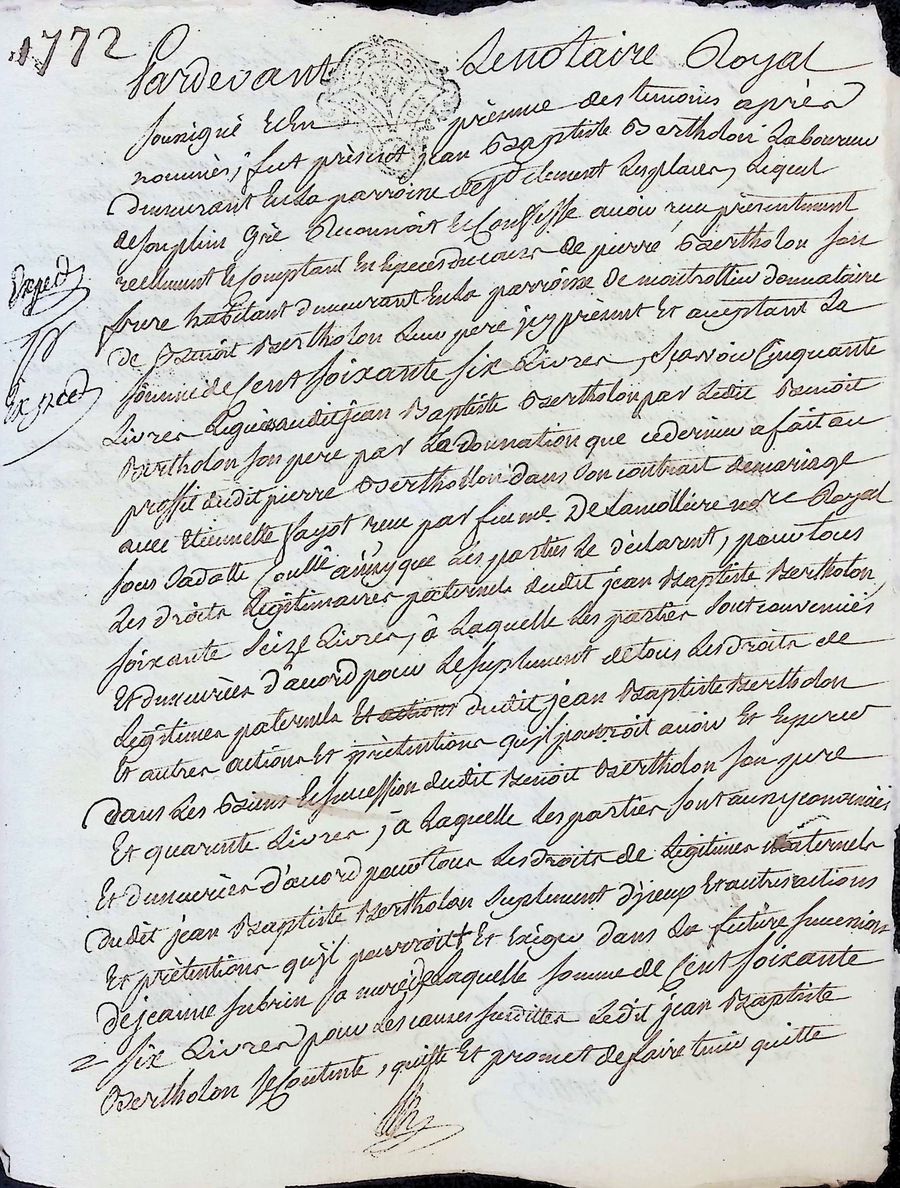 1772
Pardevant Le notaire Royal
Soussigné Et En presence des temoins après
nommés, fut présent jean Baptiste Bertholon Laboureur
demeurant En La parroisse de St Clement Les places, Lequel
de son plein Gré Reconnoit Et Confesse avoir reçu présentement
reellement Et Comptant En Especes du cours de pierre Bertholon son
frere habitant demeurant En La parroisse de montrottier donnataire
de Benoit Bertholon Leur pere jcy présent Et aceptant La
Somme de Cent soixante six Livres, sçavoir Cinquante
Livres Leguées audit jean Baptiste Bertholon par Ledit Benoit
Bertholon son pere par La donnation que ce dernier a fait au
proffit dudit pierre Bertholon dans son contrat de mariage
avec Etiennette fayot reçu par feu me. De Lamolliere nore Royal
sous sa datte Coullé ainsy que Les parties Le déclarent, pour tous
Les droits Légitimaires paternels dudit jean Baptiste Bertholon,
soixante seize Livres, à Laquelle Les parties sont convenües
Et demeurées d'acord pour Le suplement de tous Les droits de
Légitimes paternels Et actions dudit jean Baptiste Bertholon
Et autres actions Et prétentions qu'jl pourroit avoir Et Exercer
dans Les Biens Et succession dudit Benoit Bertholon son pere
Et quarente Livres, à Laquelle Les parties sont aussy convenües
Et demeurées d'acord pour tous Les droits de Légitimes maternels
dudit jean Baptiste Bertholon suplement d'jceux Et autres actions
Et prétentions qu'jl pourroit Et Exiger dans La future sucession
de jeanne subrin sa mere, de Laquelle somme de Cent soixante
six Livres pour Les causes susdittes Ledit jean Baptiste
Bertholon se Contente, quitte Et promet de faire tenir quitte
Exped
Exped